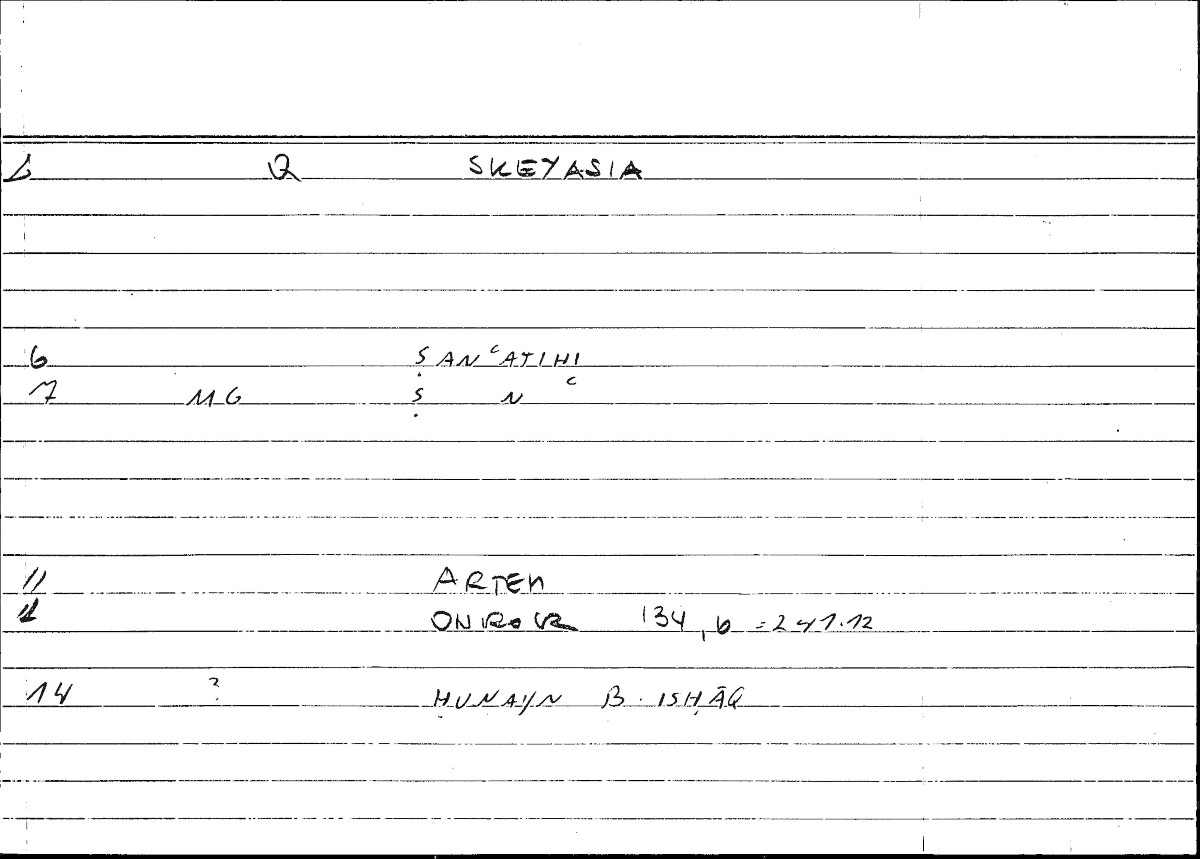 1 Q SKEYASIA
6 ṢANʿATIHI
7 MG Ṣ N ʿ
11 ARTEM
12 ONIROCR 134, 6 = 241.12
14 ? ḤUNAYN B. ISḤĀQ